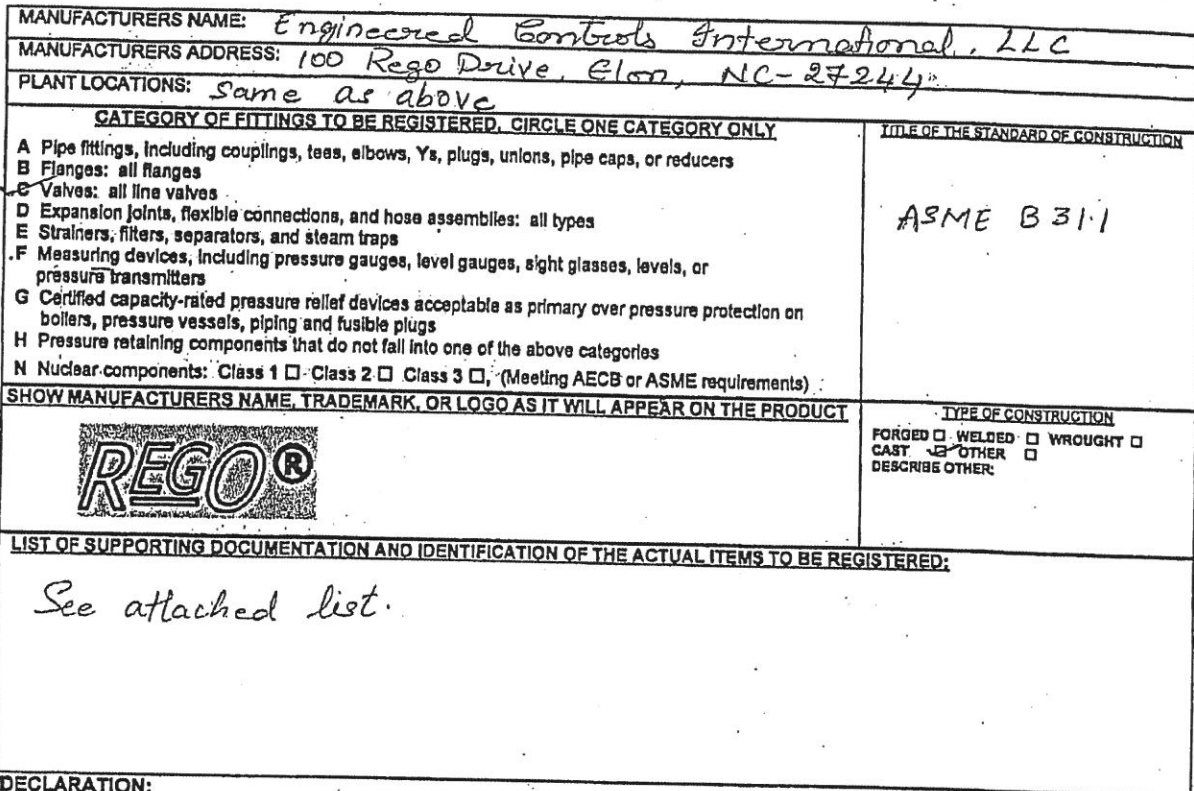 MANUFACTURERS NAME: Engineered Controls International, LLC
MANUFACTURERS ADDRESS: 100 Rego Drive, Elon, NC-27244
PLANT LOCATIONS: Same as above
CATEGORY OF FITTINGS TO BE REGISTERED, CIRCLE ONE CATEGORY ONLY
A Pipe fittings, including couplings, tees, elbows, Ys, plugs, unions, pipe caps, or reducers
B Flanges: all flanges
C Valves: all line valves
D Expansion joints, flexible connections, and hose assemblies: all types
E Strainers, filters, separators, and steam traps
F Measuring devices, including pressure gauges, level gauges, sight glasses, levels, or
pressure transmitters
G Certified capacity-rated pressure relief devices acceptable as primary over pressure protection on
boilers, pressure vessels, piping and fusible plugs
H Pressure retaining components that do not fall into one of the above categories
N Nuclear components: Class 1 ☐ Class 2 ☐ Class 3 ☐, (Meeting AECB or ASME requirements)
TITLE OF THE STANDARD OF CONSTRUCTION
ASME B 31.1
SHOW MANUFACTURERS NAME, TRADEMARK, OR LOGO AS IT WILL APPEAR ON THE PRODUCT
REGO®
TYPE OF CONSTRUCTION
FORGED ☐ WELDED ☐ WROUGHT ☐
CAST ☑ OTHER ☐
DESCRIBE OTHER:
LIST OF SUPPORTING DOCUMENTATION AND IDENTIFICATION OF THE ACTUAL ITEMS TO BE REGISTERED:
See attached list.
DECLARATION: